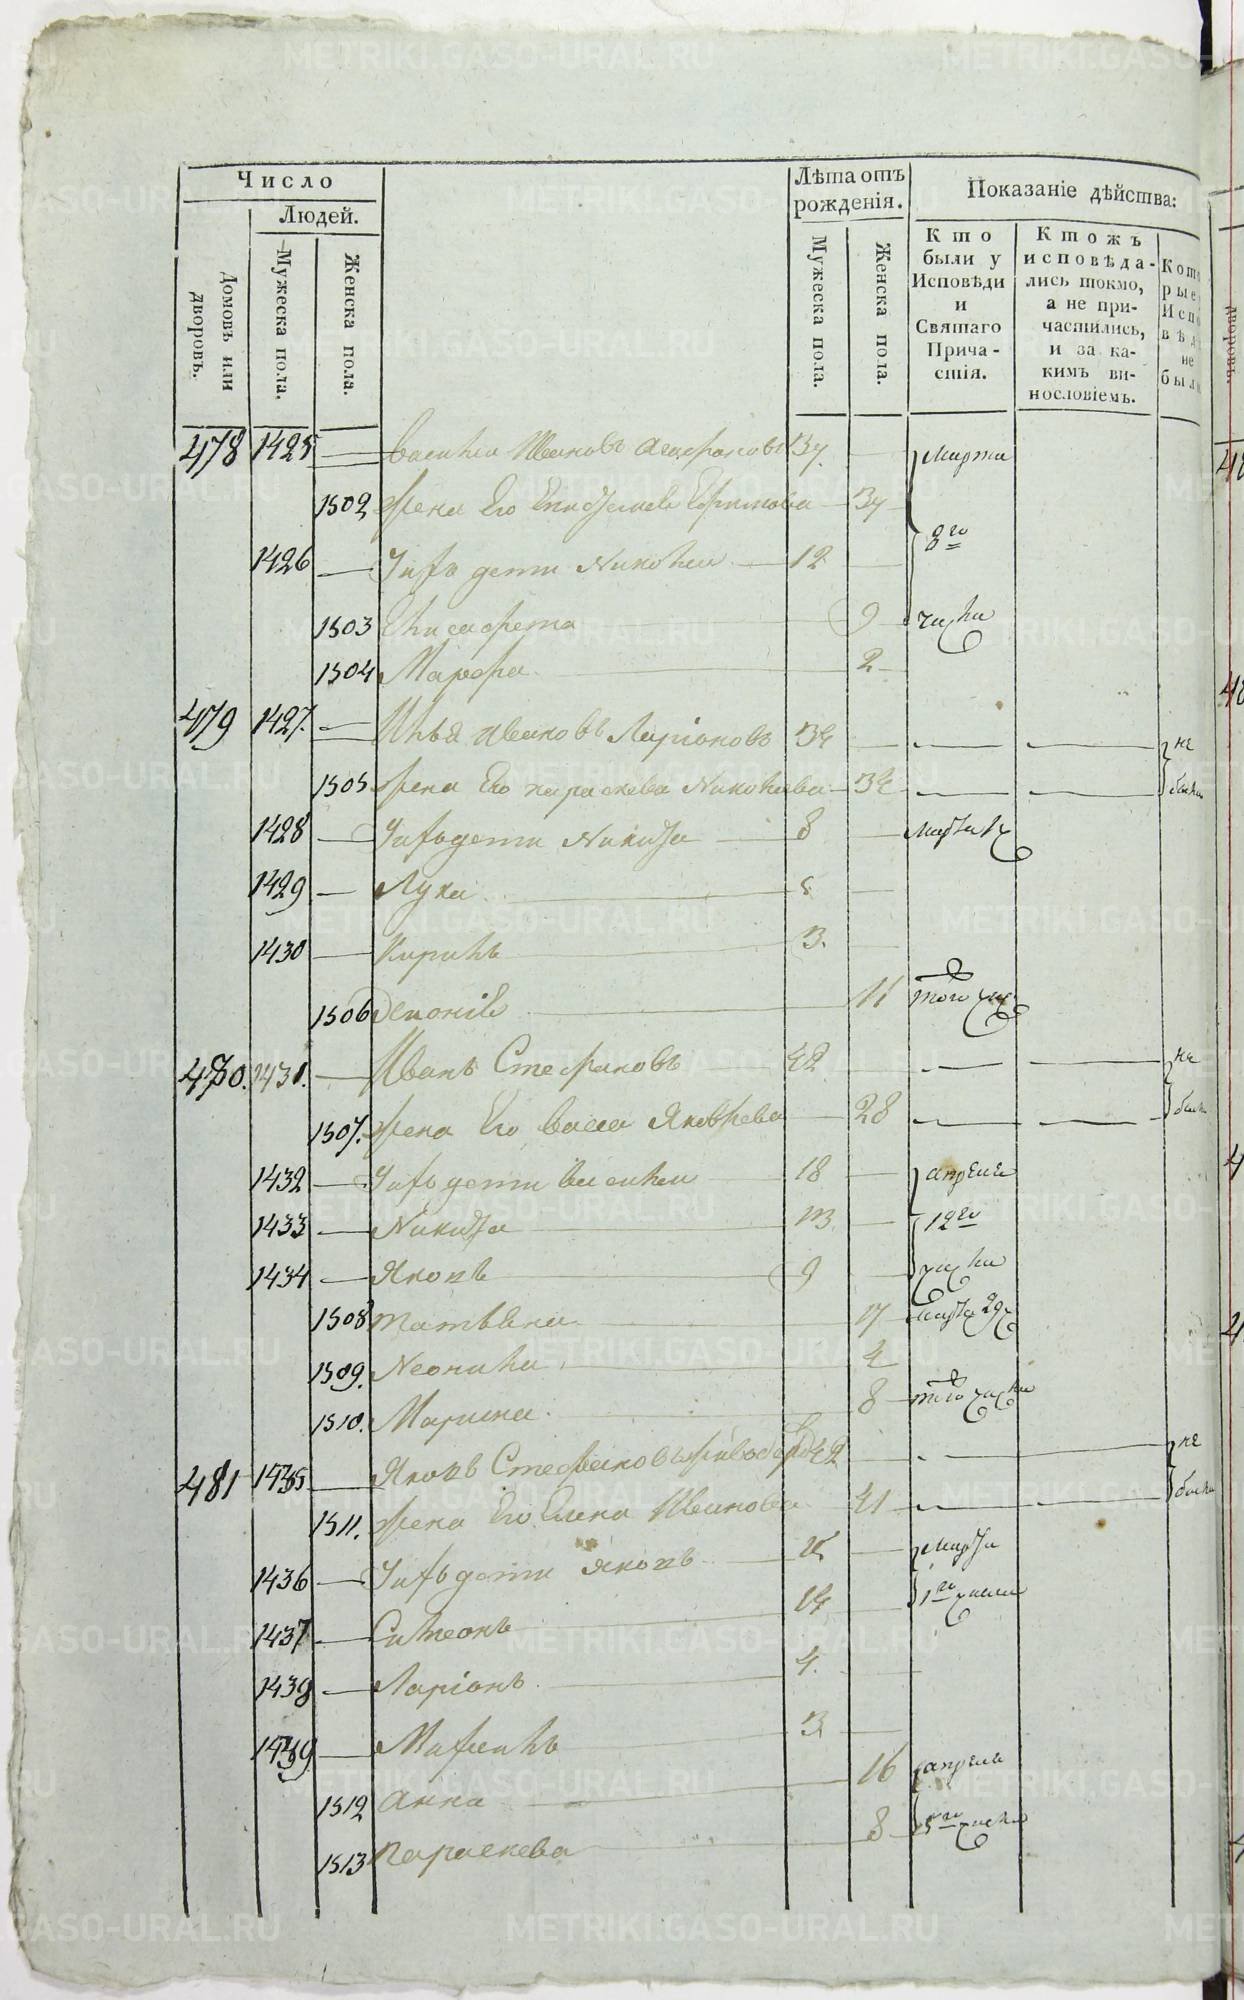 Число
Людей.
Домовъ или дворовъ.
Мужеска пола.
Женска пола.
Лѣта отъ рожденія.
Мужеска пола.
Женска пола.
Показаніе дѣйства:
Кто были у Исповѣди и Святаго Прича-стія.
Ктожъ исповѣда-лись токмо, а не при-частились, и за ка-кимъ ви-нословіемъ.
478 1425 Василей Ивановъ 37. марта
1502 жена Его Ефимова 37
1426 Ихъ дети Николай 12 8го
1503 Елисавета 9 числа
1504 Марфа 2
479 1427. Илья Ивановъ Ларіоновъ 34 не
1505 жена Его параскева Николаева 34 были
1428 Ихъ дети Никита 8 марта
1429 Лука 5
1430 Кирилъ 3.
1506 11 того
480. 1431. Иванъ Стефановъ 42 не
1507. жена Его васса Яковлева 28 были
1432 Ихъ дети василей 18 апреля
1433 Никита 13 12го
1434 Яковъ 9 числа
1508 татьяна 17 марта 29
1509. Неонила 4
1510. Марина. 8 того числа
481 1435 Яковъ Стефановъ 42 не
1511. жена Его Елена Иванова 41 были
1436 Ихъ дети яковъ 15 марта
1437 Симеонъ 14 1го числа
1438 Ларіонъ 4.
1439 Михаилъ 3
1512 анна 16 апреля
1513 параскева 8 5го числа
METRIKI.GASO-URAL.RU